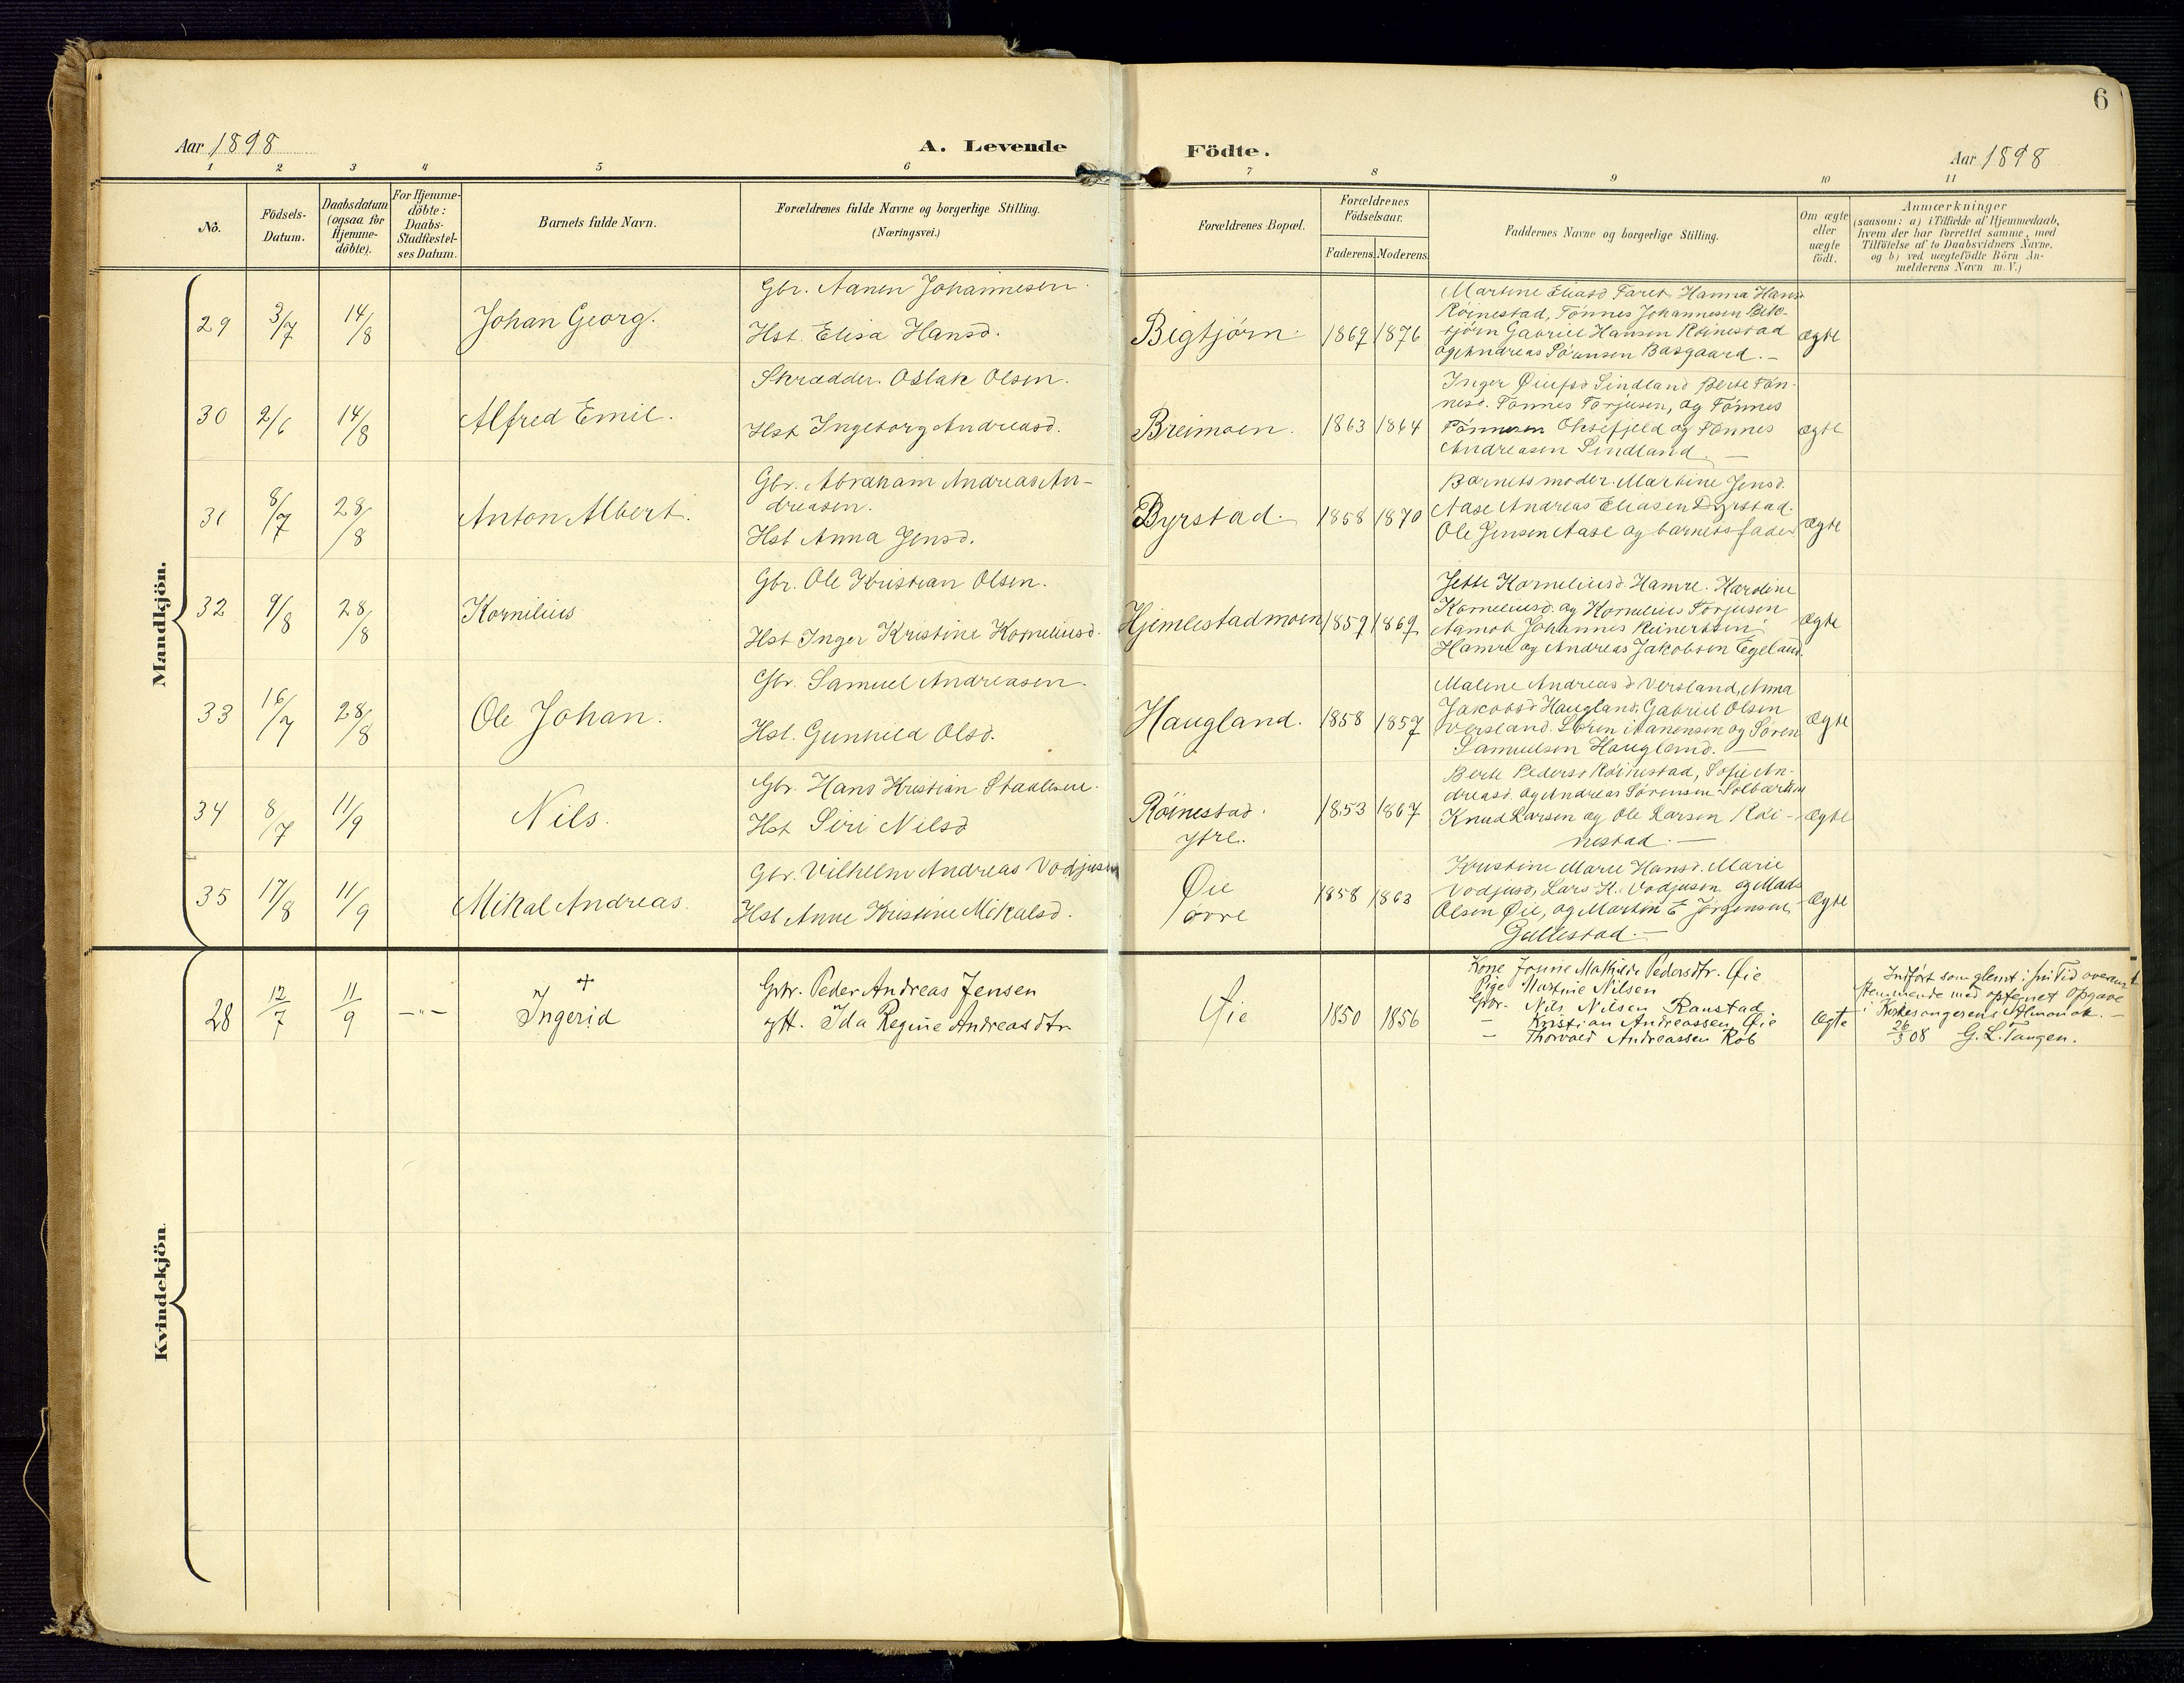 6
Aar 1898
A. Levende
Födte.
Aar 1898
1 2 3 4 5 6 7 8 9 10 11
No.
Födsels-
Datum.
Daabsdatum
(ogsaa for
Hjemme-
döbte).
For Hjemme-
döbte:
Daabs-
Stadfæstel-
ses Datum.
Barnets fulde Navn.
Forældrenes fulde Navne og borgerlige Stilling.
(Næringsvei.)
Forældrenes Bopæl.
Forældrenes
Födselsaar.
Faderens. Moderens.
Faddernes Navne og borgerlige Stilling.
Om ægte
eller
uægte
födt.
Anmærkninger
(saasom: a) i Tilfælde af Hjemmedaab,
hvem der har forrettet samme, med
Tilföielse af to Daabsvidners Navne.
og b) ved uægtefödte Börn An-
melderens Navn m. V.)
Mandkjön.
29 3/7 14/8 Johan Georg.
Gbr. Aanen Johannesen.
Hst. Elisa Hansd.
Bigtjørn. 1869 1876
Martine Eliasd Faret, Hanna Hansd
Röinestad, Tønnes Johannesen Bik-
tjörn Gabriel Hansen Röinestad
og Andreas Sørensen Basgaard. –
ægte
30 2/6 14/8 Alfred Emil.
Skrædder. Oslak Olsen.
Hst Ingeborg Andreasd.
Breimoen. 1863 1864
Inger Sindland Berte Tøn-
nesd. Tønnes Torjusen, og Tønnes
Tønnesen Oksefjeld og Tønnes
Andreasen Sindland. –
ægte
31 8/7 28/8 Anton Albert.
Gbr. Abraham Andreas An-
dreasen.
Hst Anna Jensd.
Byrstad. 1858 1870
Barnets moder. Martine Jensd.
Aase Andreas Eliasen Dyrstad.
Ole Jensen Aase og barnets fader.
ægte
32 9/8 28/8 Kornilius
Gbr. Ole Kristian Olsen.
Hst Inger Kristine Korneliusd.
Hjemlestadmoen 1859 1869
Jette Korneliusd. Hamre. Karoline
Korneliusd. og Kornelius Torjusen
Aamot Johannes Reinertsen
Hamre og Andreas Jakobsen Egeland.
ægte
33 16/7 28/8 Ole Johan.
Gbr. Samuel Andreasen.
Hst. Gunhild Olsd.
Haugland. 1858 1857
Maline Andreasd Versland, Anna
Jakobsd Haugland. Gabriel Olsen
Versland. Sören Aanensen og Sören
Samuelsen Haugland. –
ægte
34 8/7 11/9 Nils.
Gbr. Hans Kristian Staalesen.
Hst Siri Nilsd
Röinestad.
ytre. 1853 1867
Berte Pedersd Röinestad, Sofie An-
dreasd. og Andreas Sørensen
Knud Larsen og Ole Larsen Röi-
nestad. –
ægte
35 17/8 11/9 Mikal Andreas.
Gbr. Vilhelm Andreas Vodjusen
Hst Anne Kristine Mikalsd.
Øie
övre 1858 1863
Kristine Marie Hansd. Marie
Vodjusd, Lars H. Vodjusen og Mads
Olsen Øie, og Martin E Jörgensen
Gullestad. –
ægte
Kvindekjön
28 12/7 11/9 –"– + Ingerid
Gbr. Peder Andreas Jensen
og H. Ida Regine Andreasdtr
Øie 1850 1856
Kone Mathilde Pedersdtr. Øie
Pige Martine Nilsen
Gbr. Nils Nilsen Ranestad.
– Kristian Andreassen Øie
– Thorvald Andreassen Rob
Ægte
Indført som glemt i sin Tid overens-
stemmende med optegnet Opgave
i Kirkesangerens Almanak. –
26/3 08 G. L. Tangen.